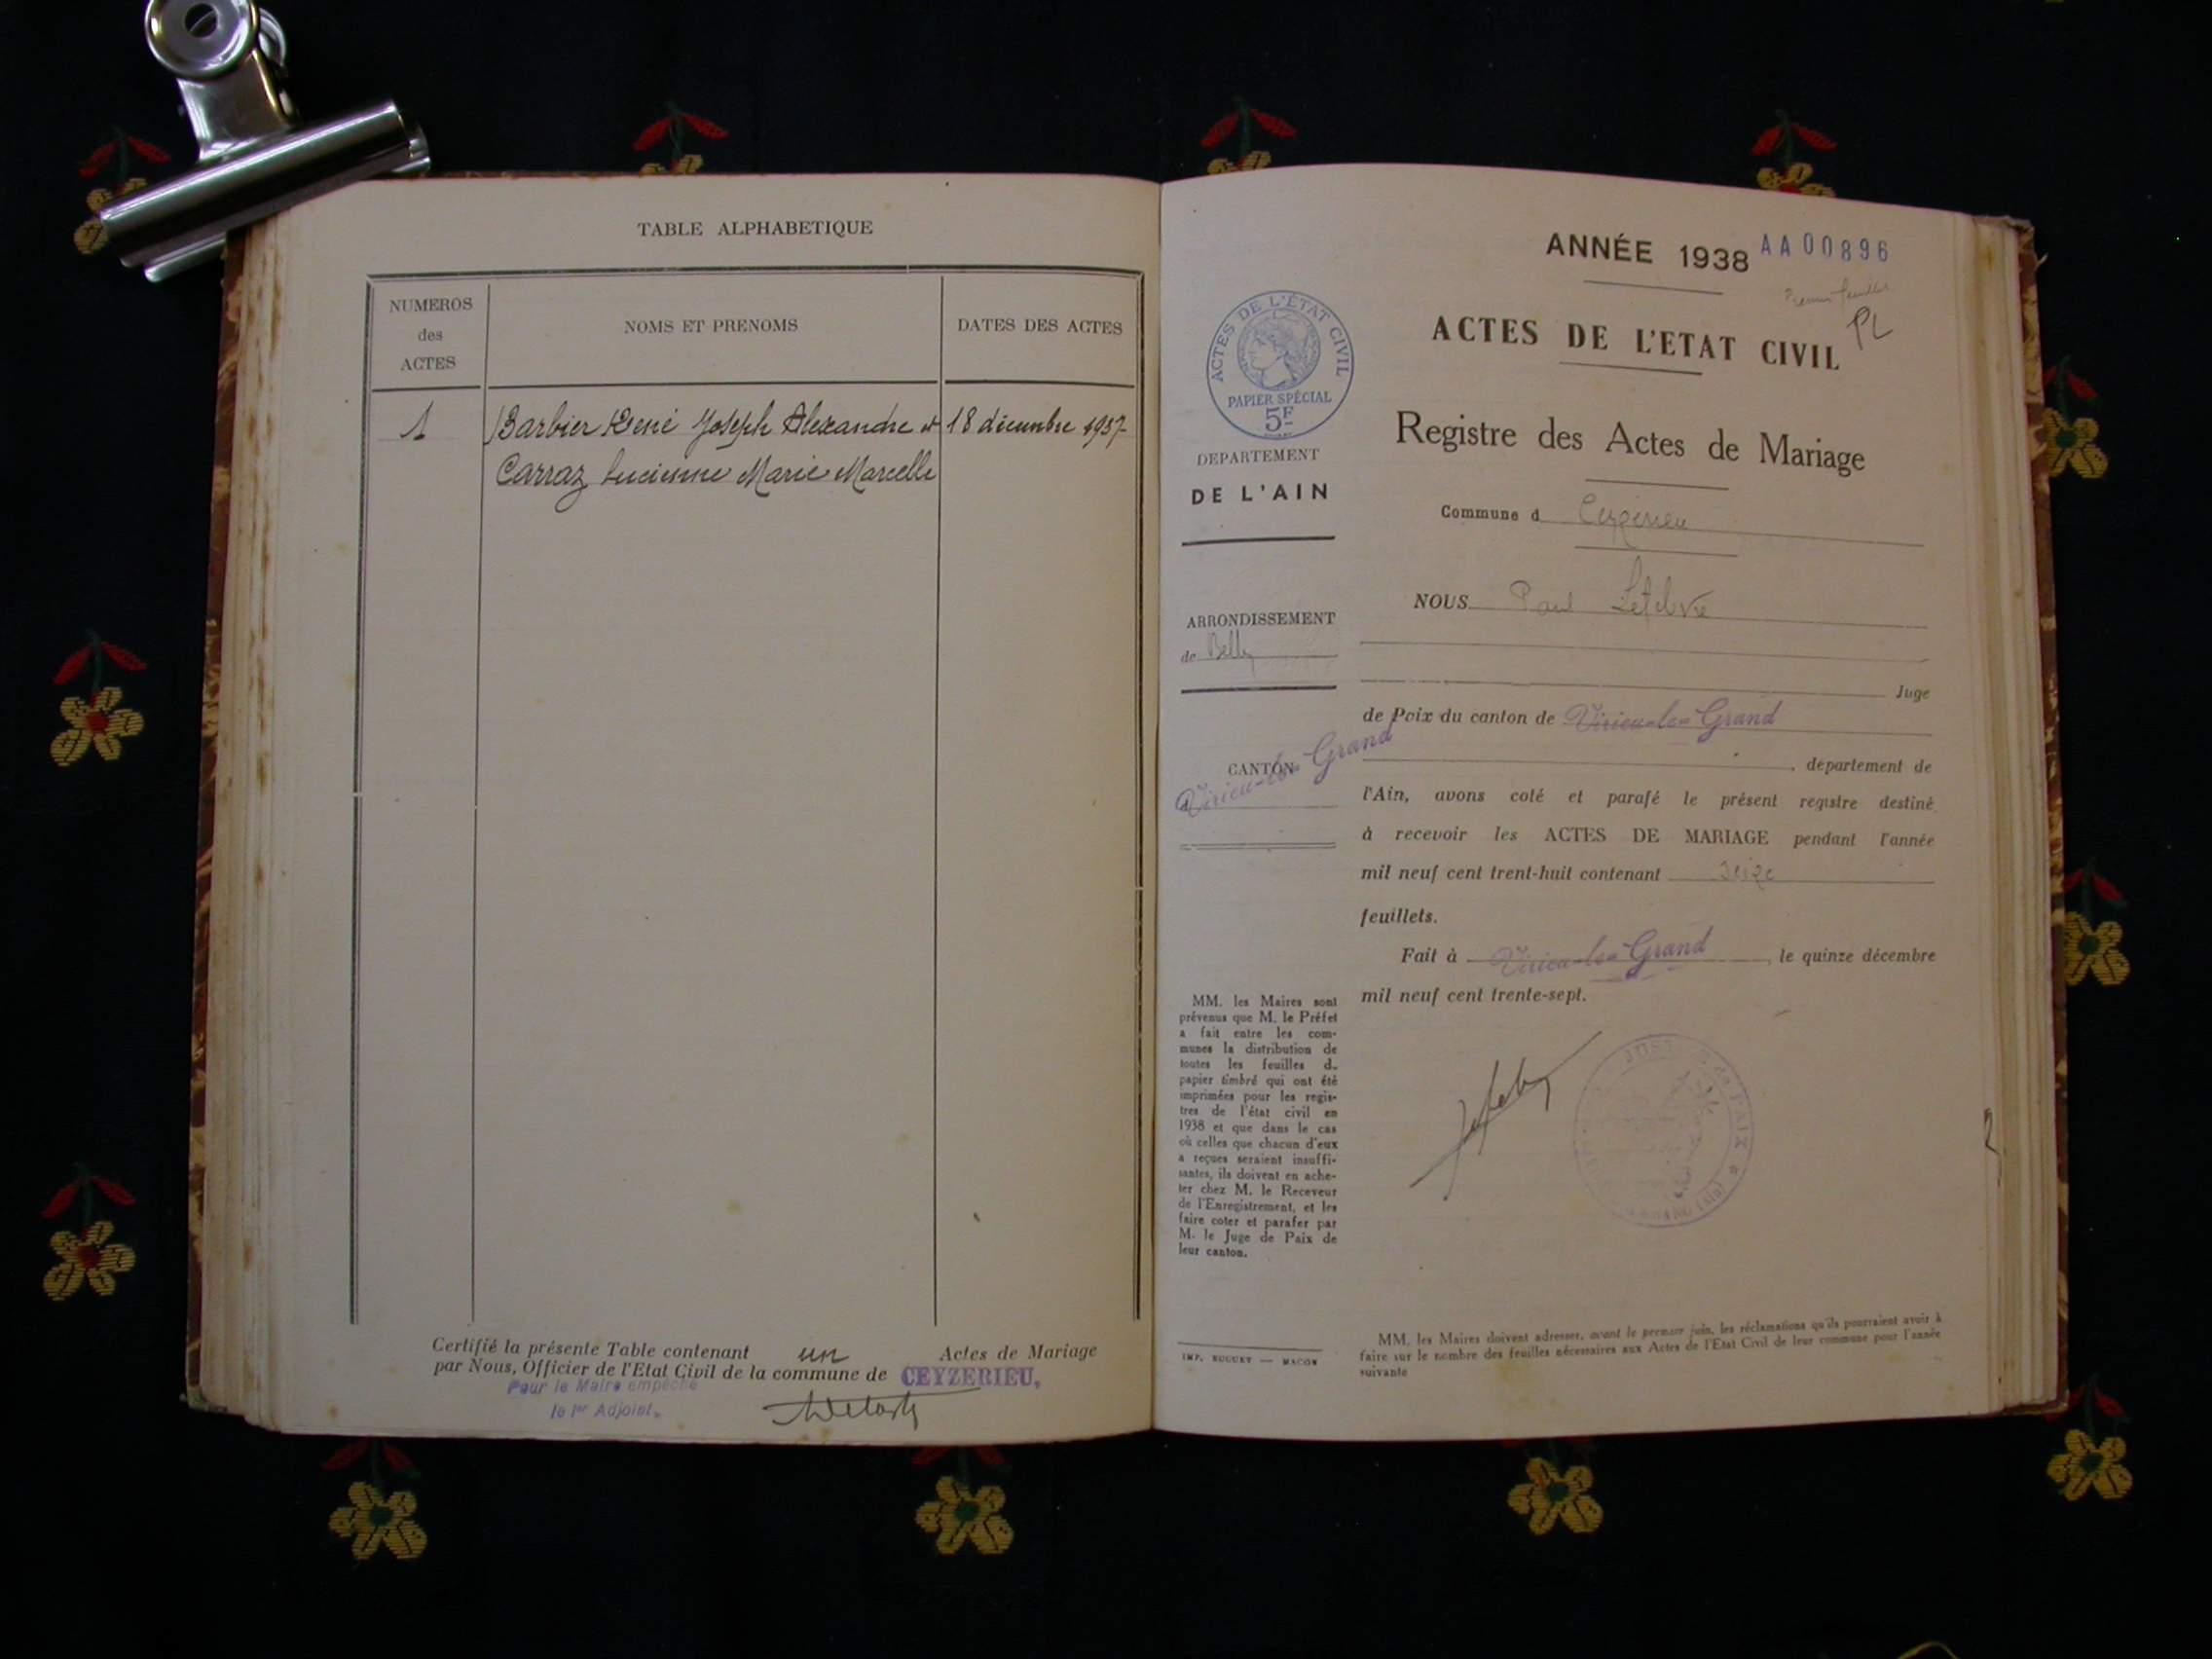 TABLE ALPHABETIQUE
NUMEROS
des
ACTES
NOMS ET PRENOMS
DATES DES ACTES
1
Barbier René Joseph Alexandre et
18 décembre 1937
Carraz Lucienne Marie Marcelle
Certifié la présente Table contenant un Actes de Mariage
par Nous, Officier de l'Etat Civil de la commune de CEYZERIEU,
Pour le Maire empêché
le 1er Adjoint.
ANNÉE 1938
AA00896
Premier feuillet
PL
ACTES DE L'ÉTAT CIVIL
PAPIER SPÉCIAL
5F
ACTES DE L'ETAT CIVIL
Registre des Actes de Mariage
DEPARTEMENT
DE L'AIN
Commune d Ceyzérieu
ARRONDISSEMENT
de Belley
NOUS Paul Lefebvre
Juge
de Paix du canton de Virieu-le-Grand
CANTON
d Virieu-le-Grand
, département de
l'Ain, avons coté et parafé le présent registre destiné
à recevoir les ACTES DE MARIAGE pendant l'année
mil neuf cent trent-huit contenant seize
feuillets.
Fait à Virieu-le-Grand, le quinze décembre
mil neuf cent trente-sept.
MM. les Maires sont
prévenus que M. le Préfet
a fait entre les com-
munes la distribution de
toutes les feuilles d.
papier timbré qui ont été
imprimées pour les regis-
tres de l'état civil en
1938 et que dans le cas
où celles que chacun d'eux
a reçues seraient insuffi-
santes, ils doivent en ache-
ter chez M. le Receveur
de l'Enregistrement, et les
faire coter et parafer par
M. le Juge de Paix de
leur canton.
IMP. BUGUET — MACON
MM. les Maires doivent adresser, avant le premier juin, les réclamations qu'ils pourraient avoir à
faire sur le nombre des feuilles nécessaires aux Actes de l'Etat Civil de leur commune pour l'année
suivante